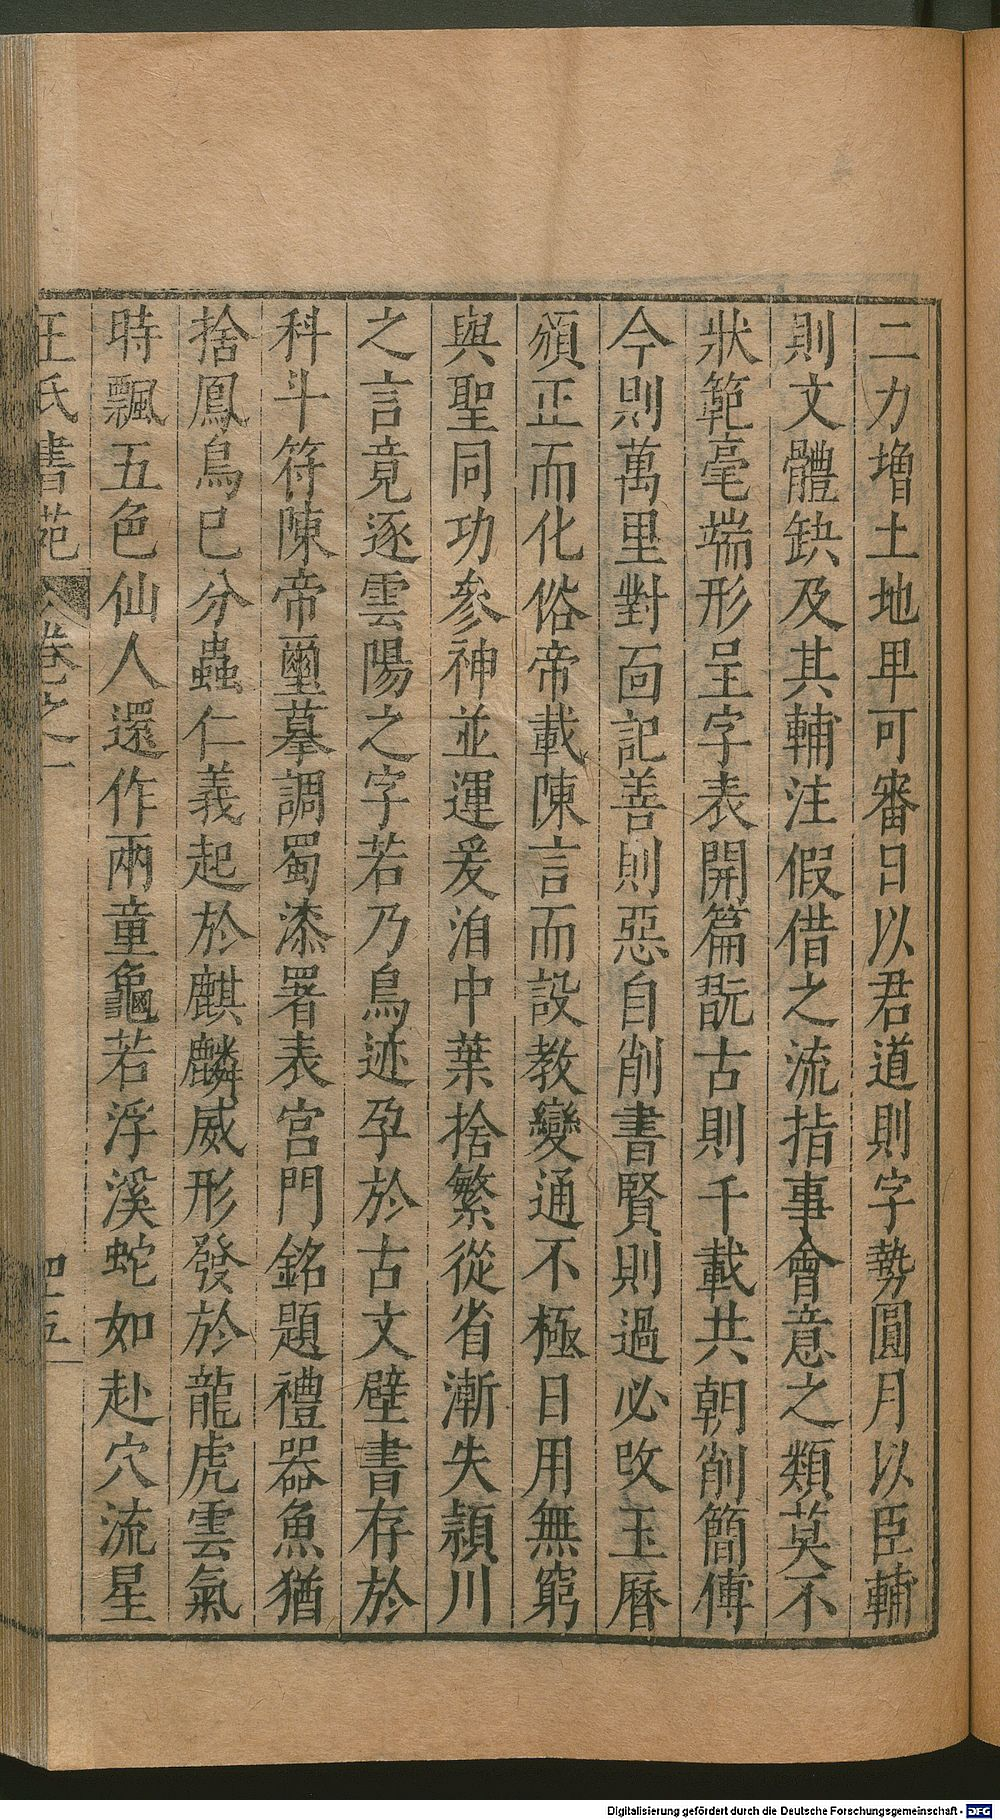 二力增土地卑可審日以君道則字勢圓月以臣輔
則文體缺及其輔注假借之流指事會意之類莫不
狀範毫端形呈字表開篇翫古則千載共朝削簡傳
今則萬里對面記善則惡自削書賢則過必改玉曆
頒正而化俗帝載陳言而設教變通不極日用無窮
與聖同功參神並運爰洎中葉捨繁從省漸失潁川
之言竟逐雲陽之字若乃鳥迹孕於古文壁書存於
科斗符陳帝璽摹調蜀漆署表宮門銘題禮器魚猶
捨鳳鳥已分蟲仁義起於麒麟威形發於龍虎雲氣
時飄五色仙人還作兩童龜若浮溪蛇如赴穴流星
王氏書苑 卷之一 四十五
Digitalisierung gefördert durch die Deutsche Forschungsgemeinschaft - DFG